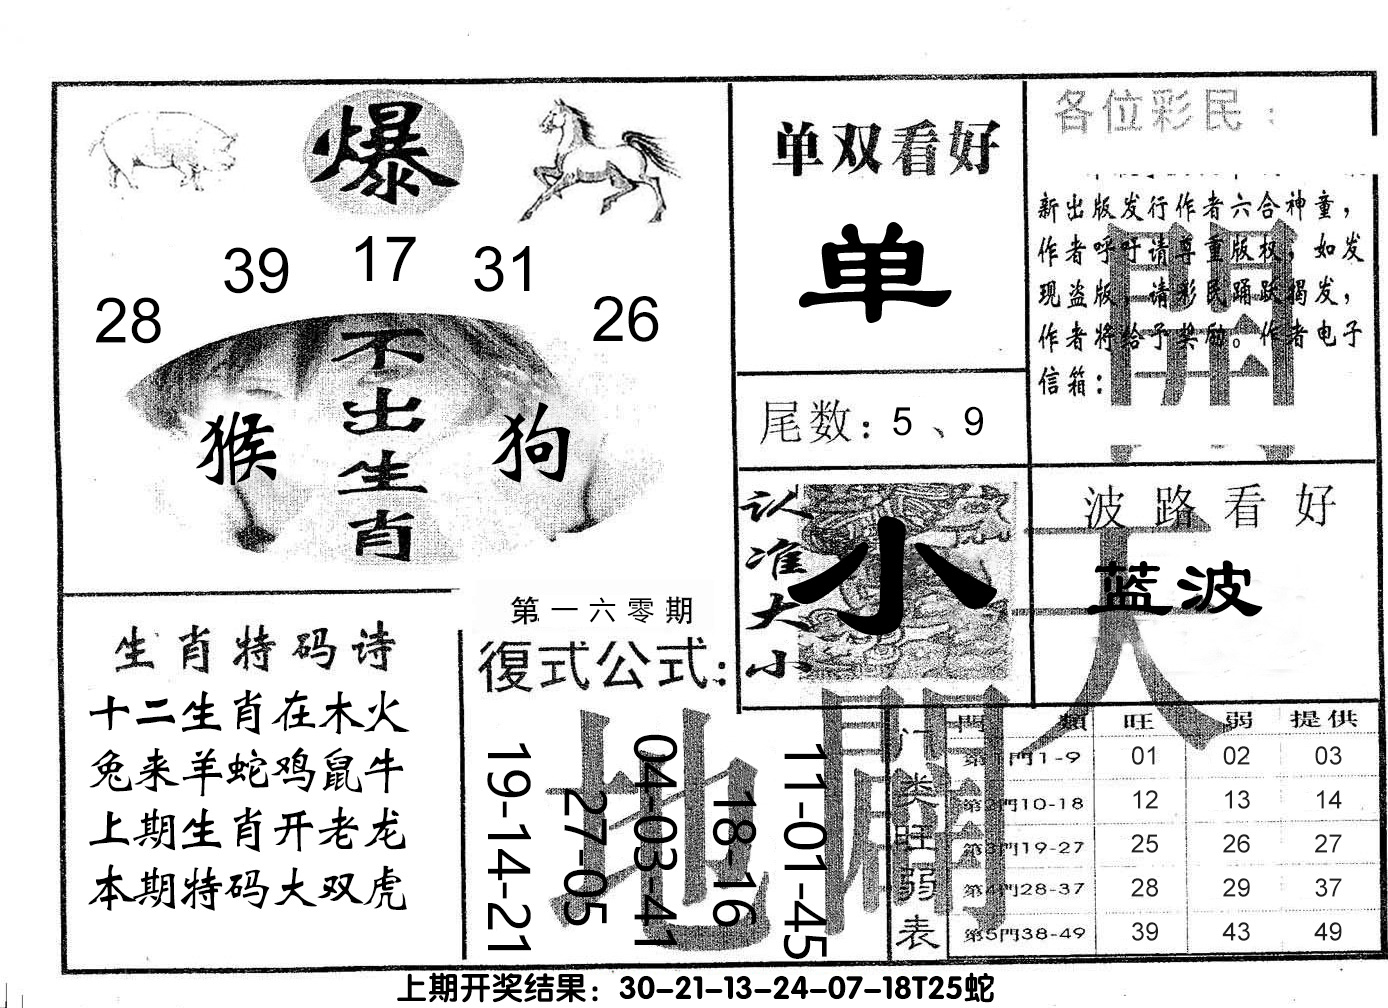 爆
28 39 17 31 26
不出生肖
猴 狗
单双看好
单
尾数：5、9
认准大小
小
各位彩民：
新出版发行作者六合神童，
作者呼吁请尊重版权，如发
现盗版，请彩民踊跃揭发，
作者将给予奖励。作者电子
信箱：
波路看好
蓝波
天
地
開
開
生肖特码诗
十二生肖在木火
兔来羊蛇鸡鼠牛
上期生肖开老龙
本期特码大双虎
第一六零期
復式公式：
19-14-21
27-05
04-03-41
18-16
11-01-45
门类旺弱表
門類 旺 弱 提供
第1門1-9 01 02 03
第2門10-18 12 13 14
第3門19-27 25 26 27
第4門28-37 28 29 37
第5門38-49 39 43 49
上期开奖结果：30-21-13-24-07-18T25蛇